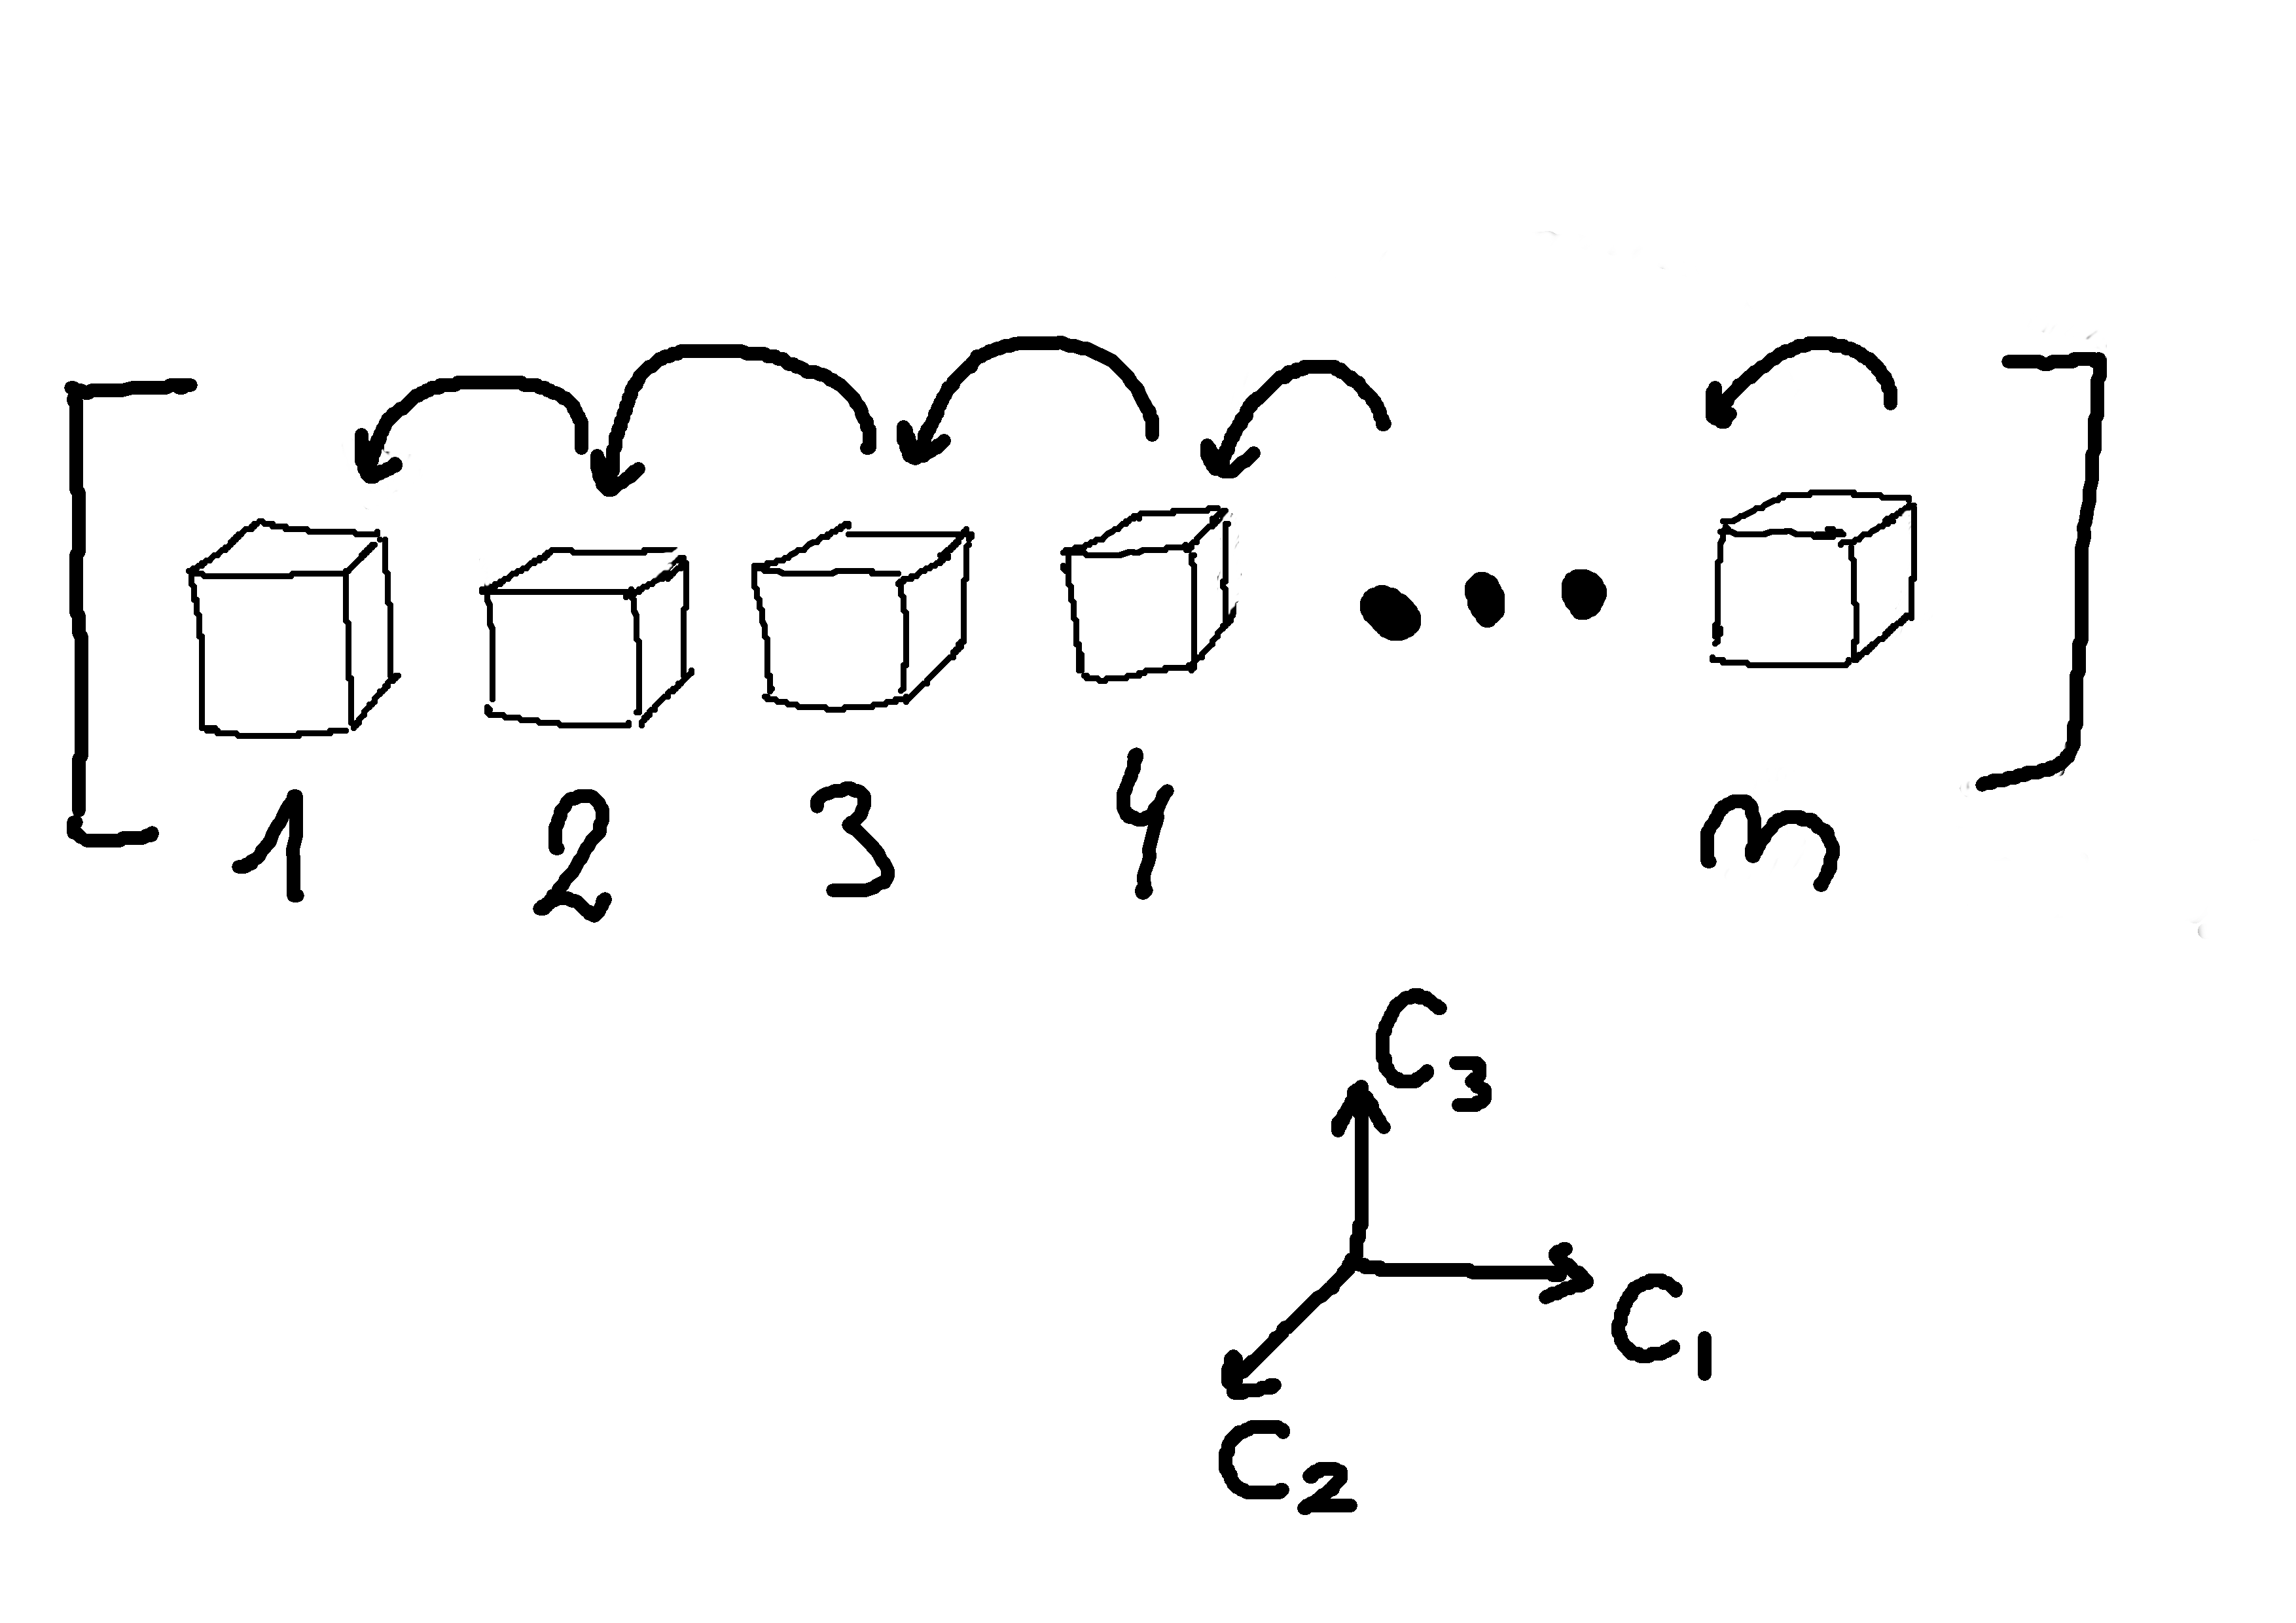 1 2 3 4 m
C3
C1
C2